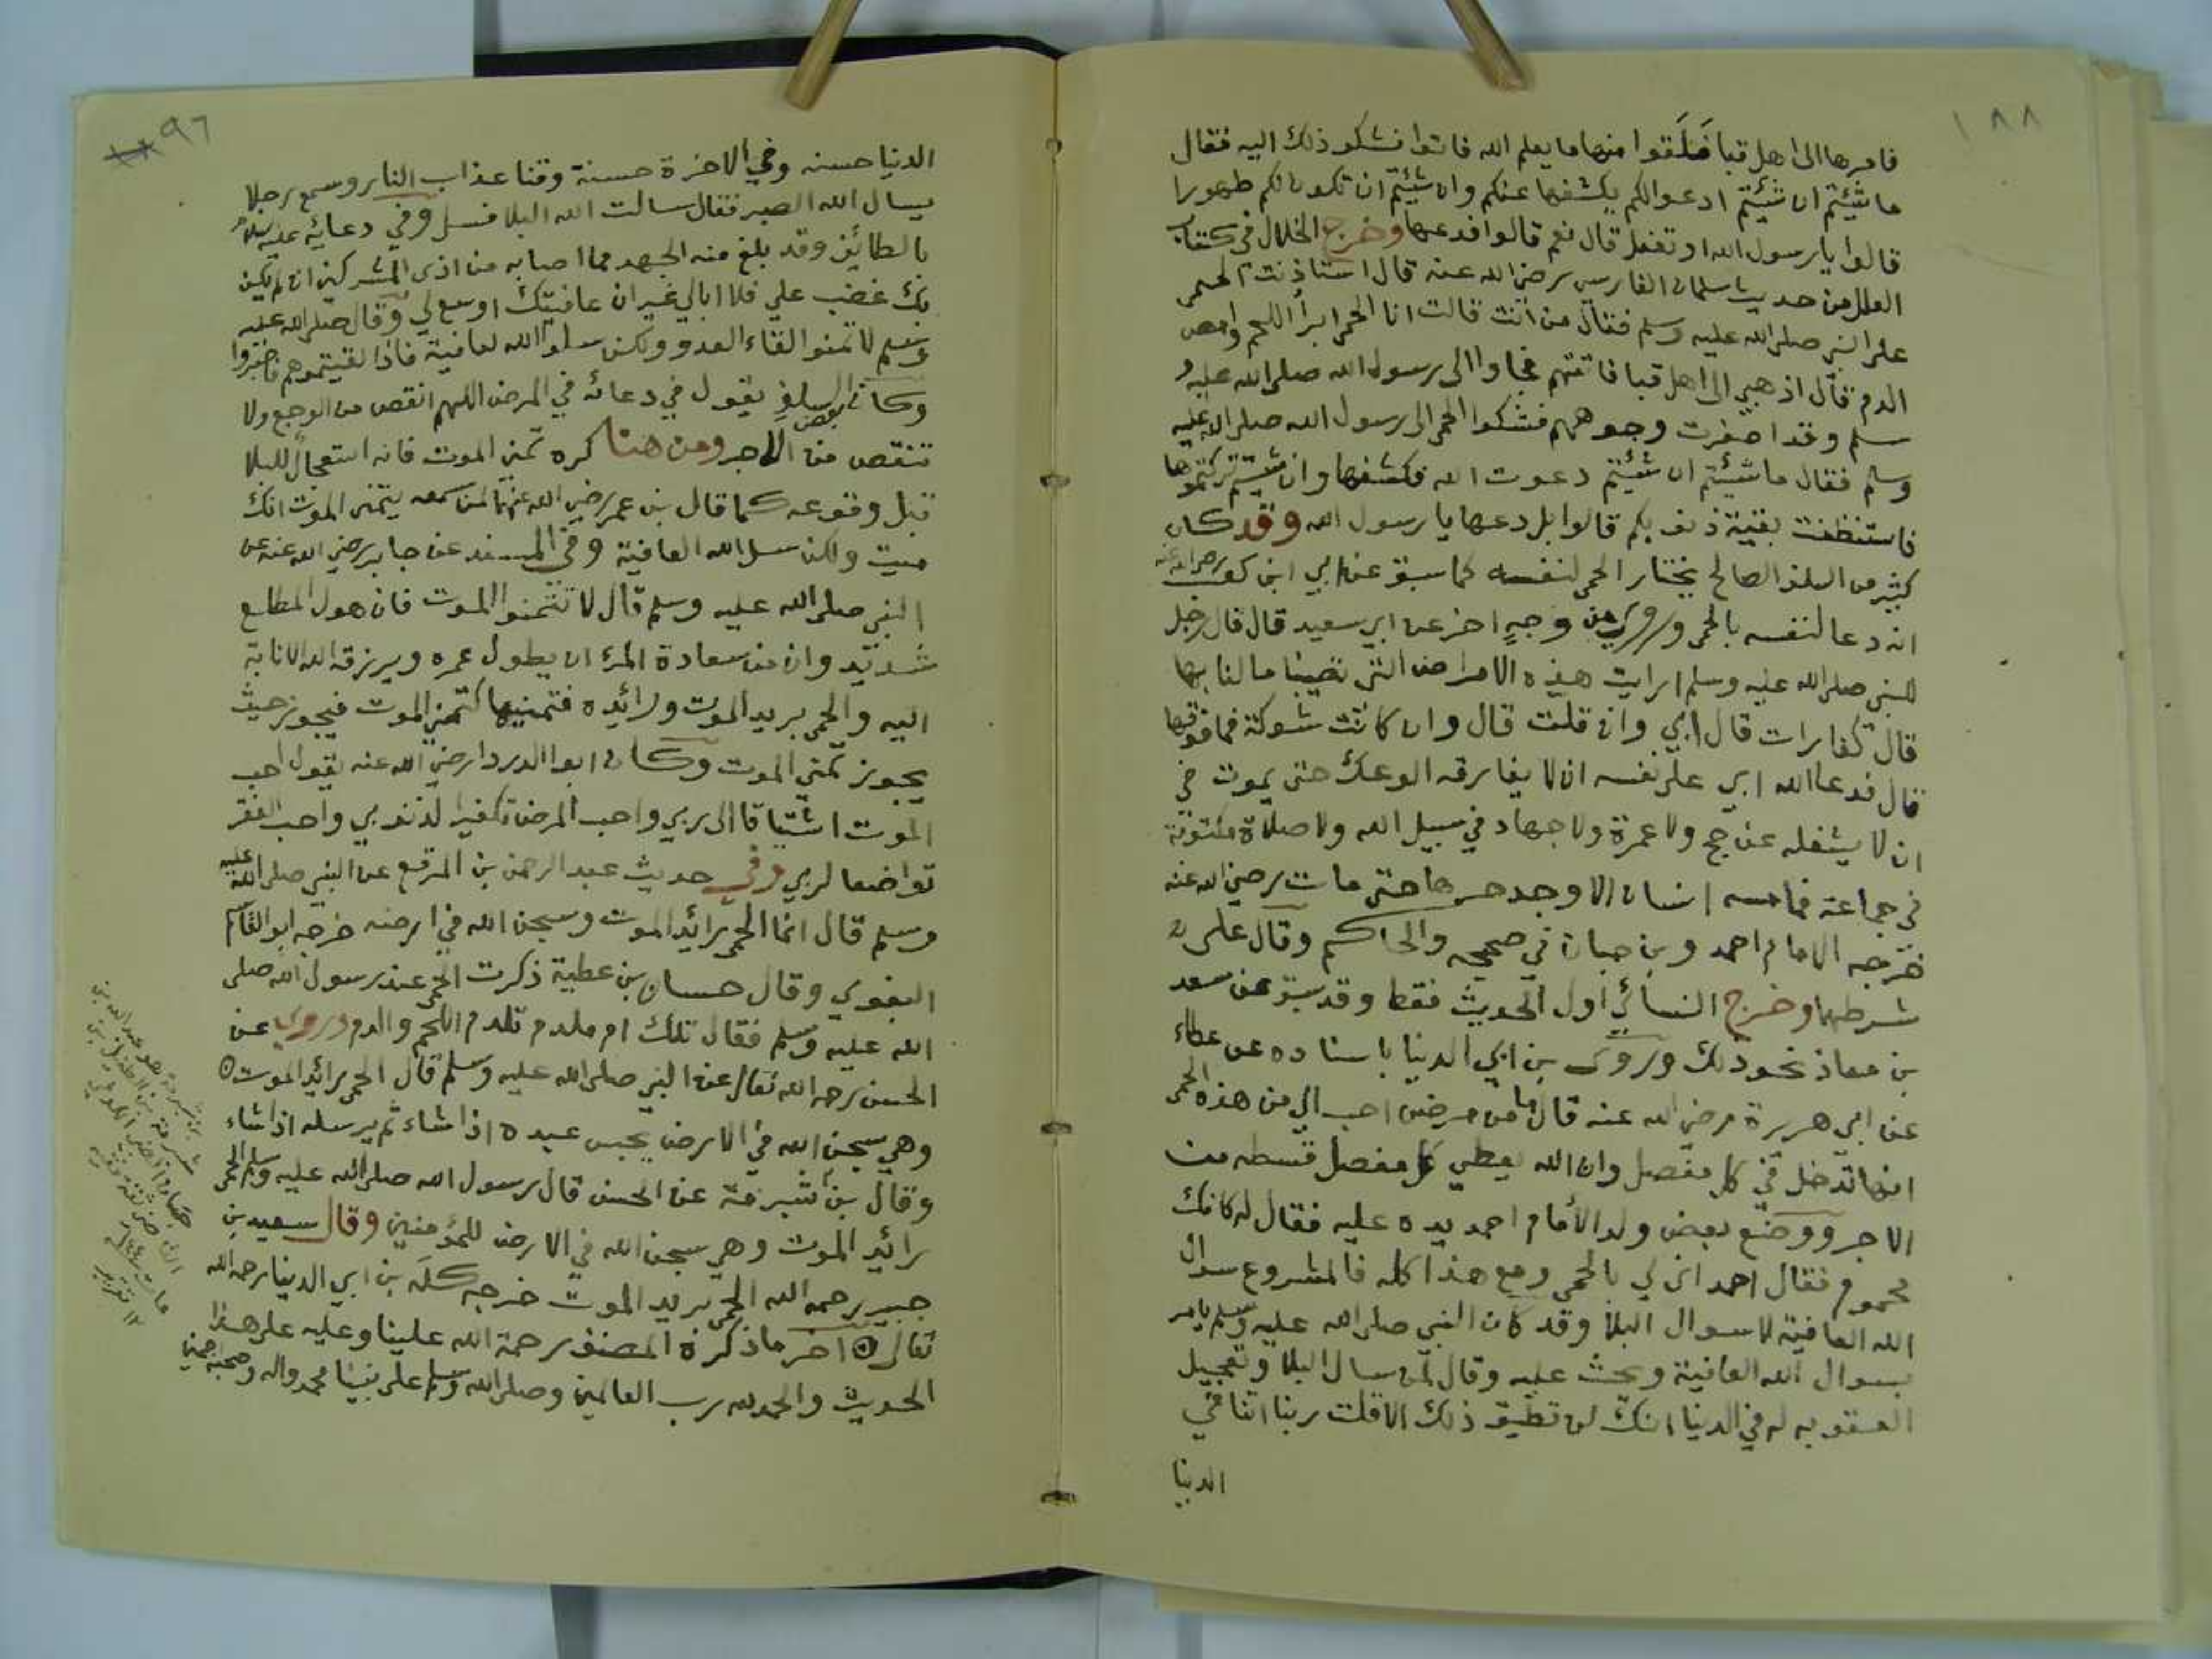 ١٨٨
فامرها الى اهل قبا فلَقَوا منها ما يعلم الله فاتوا فشكو ذلك اليه فقال
ما شئتم ان شئتم ادعوا لكم يكشفها عنكم وان شئتم ان تكون لكم طهورا
قالوا يا رسول الله او تفعل قال نعم قالوا فدعها وخرج الخلال في كتاب
العلل من حديث سلمان الفارسي رضي الله عنه قال استاذنت الحمى
على النبي صلى الله عليه وسلم فقال من انت قالت انا الحمى ابرأ اللحم وامص
الدم قال اذهبي الى اهل قبا فاتتهم فجاوا الى رسول الله صلى الله عليه و
سلم وقد اصفرت وجوههم فشكوا الحمى الى رسول الله صلى الله عليه
وسلم فقال ما شئتم ان شئتم دعوت الله فكشفها وان شئتم تركتموها
فاستنظفت بقية ذنوبكم قالوا بل دعها يا رسول الله وقد كان
كثير من السلف الصالح يختار الحمى لنفسه كما سبق عن ابي ابن كعب رضي الله عنه
انه دعا لنفسه بالحمى وروي من وجهٍ اخر عن ابي سعيد قال قال رجل
للنبي صلى الله عليه وسلم ارايت هذه الامراض التي تصيبنا ما لنا بها
قال كفارات قال ابي وان قلت قال وان كانت شوكة فما فوقها
قال فدعا الله ابي على نفسه ان لا يفارقه الوعك حتى يموت في
ان لا يشغله عن حج ولا عمرة ولا جهاد في سبيل الله ولا صلاة مكتوبة
في جماعة فما مسه انسان الا وجد حرها حتى مات رضي الله عنه
خرجه الامام احمد وبن حبان في صحيحه والحاكم وقال على
شرطهما وخرج النسائي اول الحديث فقط وقد سبق عن سعد
بن معاذ نحو ذلك وروى بن ابي الدنيا باسناده عن عطاء
عن ابي هريرة رضي الله عنه قال ما من مرض احب الي من هذه الحمى
انها تدخل في كل مفصل وان الله يعطي كل مفصل قسطه من
الاجر ووضع بعض ولد الأمام احمد يده عليه فقال له كانك
محموم فقال احمد انى لي بالحمى ومع هذا كله فالمشروع سوال
الله العافية لا سوال البلا وقد كان النبي صلى الله عليه وسلم يامر
بسوال الله العافية ويحث عليه وقال لمن سال البلا وتعجيل
العقوبه له في الدنيا انك لن تطيق ذلك الا قلت ربنا اتنا في
الدنيا
٩٦
الدنيا حسنه وفي الاخرة حسنة وقنا عذاب النار وسمع رجلا
يسال الله الصبر فقال سالت الله البلا فسل وفي دعائه عليه السلام
بالطائف وقد بلغ منه الجهد مما اصابه من اذى المشركين ان لم يكن
بك غضب علي فلا ابالي غير ان عافيتك اوسع لي وقال صلى الله عليه
وسلم لا تمنوا لقاء العدو ولكن سلوا الله العافية فاذا لقيتموهم فاصبروا
وكان بعض السلف يقول في دعائه في المرض اللهم انقص من الوجع ولا
تنقص من الاجر ومن هنا كره تمني الموت فانه استعجالٌ للبلا
قبل وقوعه كما قال بن عمر رضي الله عنهما لمن سمعه يتمنى الموت انك
ميت ولكن سل الله العافية وفي المسند عن جابر رضي الله عنه عن
النبي صلى الله عليه وسلم قال لا تتمنوا الموت فان هول المطلع
شديد وان من سعادة المرء ان يطول عمره ويرزقه الله الانابة
اليه والحمى بريد الموت ورائده فتمنيها كتمني الموت فيجوز حيث
يجوز تمني الموت وكان ابوا الدردا رضي الله عنه يقول احب
الموت اشتياقا الى ربي واحب المرض تكفيرا لذنوبي واحب الفقر
تواضعا لربي وفي حديث عبد الرحمن بن المرقع عن النبي صلى الله عليه
وسلم قال انما الحمى رائد الموت وسجن الله في ارضه خرجه ابو القاسم
البغوي وقال حسان بن عطية ذكرت الحمى عند رسول الله صلى
الله عليه وسلم فقال تلك ام ملدم تلدم اللحم والدم وروي عن
الحسن رحمه الله تعالى عن النبي صلى الله عليه وسلم قال الحمى رائد الموت
وهي سجن الله في الارض يحبس عبده اذا شاء ثم يرسله اذا شاء
وقال بن شبرمة عن الحسن قال رسول الله صلى الله عليه وسلم الحمى
رائد الموت وهي سجن الله في الارض للمؤمنين وقال سعيد بن
جبير رحمه الله الحمى بريد الموت خرجه كله بن ابي الدنيا رحمه الله
تعالى اخر ما ذكره المصنف رحمة الله علينا وعليه على هذا
الحديث والحمد لله رب العالمين وصلى الله وسلم على نبينا محمد واله وصحبه اجمعين
بن شبرمة هو عبد الله بن
شبرمة بن الطفيل بن